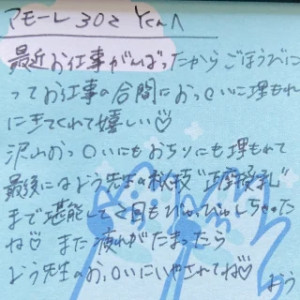 アモーレ30さ Yさんへ
最近お仕事がんばったからごほうびに
ってお仕事の合間におっ○いに埋もれ
にきてくれて嬉しい♡
沢山おっ○いにもおちりにも埋もれて
最後にはよう先生の秘技"正座
まで堪能して
ね♡ また疲れがたまったら
よう先生のおっ○いにいやされてね♡
よう